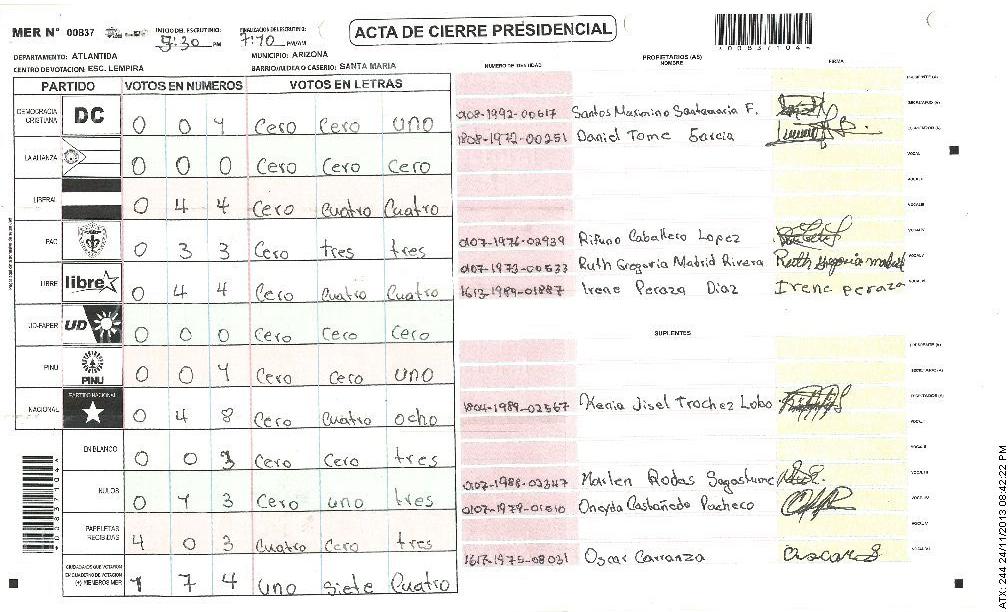 MER N° 00837 INICIO DEL ESCRUTINIO: 5:30 PM FINALIZACION DEL ESCRUTINIO: 7:10 PM/AM ACTA DE CIERRE PRESIDENCIAL
DEPARTAMENTO: ATLANTIDA MUNICIPIO: ARIZONA
CENTRO DE VOTACION: ESC. LEMPIRA BARRIO/ALDEA O CASERIO: SANTA MARIA
PARTIDO VOTOS EN NUMEROS VOTOS EN LETRAS
DEMOCRACIA CRISTIANA DC 0 0 1 Cero Cero uno
LA ALIANZA 0 0 0 Cero Cero Cero
LIBERAL 0 4 4 Cero Cuatro Cuatro
PAC 0 3 3 Cero tres tres
LIBRE libre 0 4 4 Cero Cuatro Cuatro
UD-FAPER UD 0 0 0 Cero Cero Cero
PINU PINU 0 0 1 Cero cero uno
NACIONAL PARTIDO NACIONAL 0 4 8 Cero Cuatro ocho
EN BLANCO 0 0 3 Cero Cero tres
NULOS 0 1 3 Cero uno tres
PAPELETAS RECIBIDAS 4 0 3 Cuatro Cero tres
CIUDADANOS QUE VOTARON EN CUADERNO DE VOTACION (+) MIEMBROS MER 1 7 4 uno siete Cuatro
PROPIETARIOS (AS)
NUMERO DE IDENTIDAD NOMBRE FIRMA
PRESIDENTE (A)
SECRETARIO (A) 0108-1992-00617 Santos Marinino Santamaria F.
ESCRUTADOR (A) 1808-1972-00251 Daniel Tome Garcia
VOCAL I
VOCAL II
VOCAL III
VOCAL IV 0107-1976-02939 Caballero Lopez
VOCAL V 0107-1973-00533 Ruth Gregoria Madrid Rivera Ruth Gregoria madrid
VOCAL VI 1613-1989-01887 Irene Peraza Diaz Irene peraza
SUPLENTES
PRESIDENTE (A)
SECRETARIO (A)
ESCRUTADOR (A) 1804-1989-02567 Kenia Jisel Trochez Lobo
VOCAL I
VOCAL II
VOCAL III 0107-1988-02347 Marlen Rodas Sagastume
VOCAL IV 0107-1979-01010 Oneyda Castañedo Pacheco
VOCAL V
VOCAL VI 1613-1975-08031 Oscar Carranza
*008371044*
ATX: 244 24/11/2013 08:42:22 PM